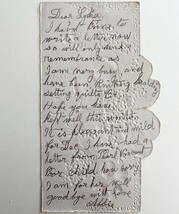 Dear Lydia
I havnt time to
write a letter now
so will only send
remembrance as
I am very busy and
have been knitting
setting quilts
Hope you have
kept well this winter.
It is pleasant and mild
for Dec I had a
letter from
Poor child how sorry
I am for her, well
goodbye with love